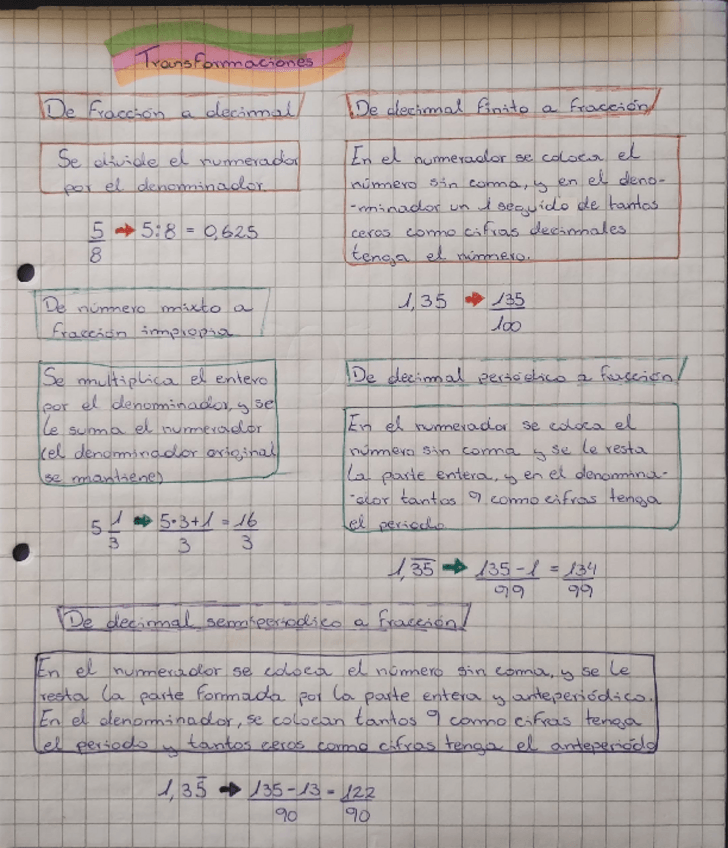 Transformaciones
De fracción a decimal
Se divide el numerador
por el denominador.
5/8 → 5:8 = 0,625
De decimal finito a fracción
En el numerador se coloca el
número sin coma, y en el deno-
-minador un 1 seguido de tantos
ceros como cifras decimales
tenga el número.
1,35 → 135/100
De número mixto a
fracción impropia
Se multiplica el entero
por el denominador, y se
le suma el numerador
(el denominador original
se mantiene)
5 1/3 → 5·3+1/3 = 16/3
De decimal periódico a fracción
En el numerador se coloca el
número sin coma y se le resta
la parte entera, y en el denomina-
-dor tantos 9 como cifras tenga
el periodo.
1,3̅5̅ → 135-1/99 = 134/99
De decimal semiperiodico a fracción
En el numerador se coloca el número sin coma, y se le
resta la parte formada por la parte entera y anteperiódico.
En el denominador, se colocan tantos 9 como cifras tenga
el periodo y tantos ceros como cifras tenga el anteperiódo
1,35̅ → 135-13/90 = 122/90